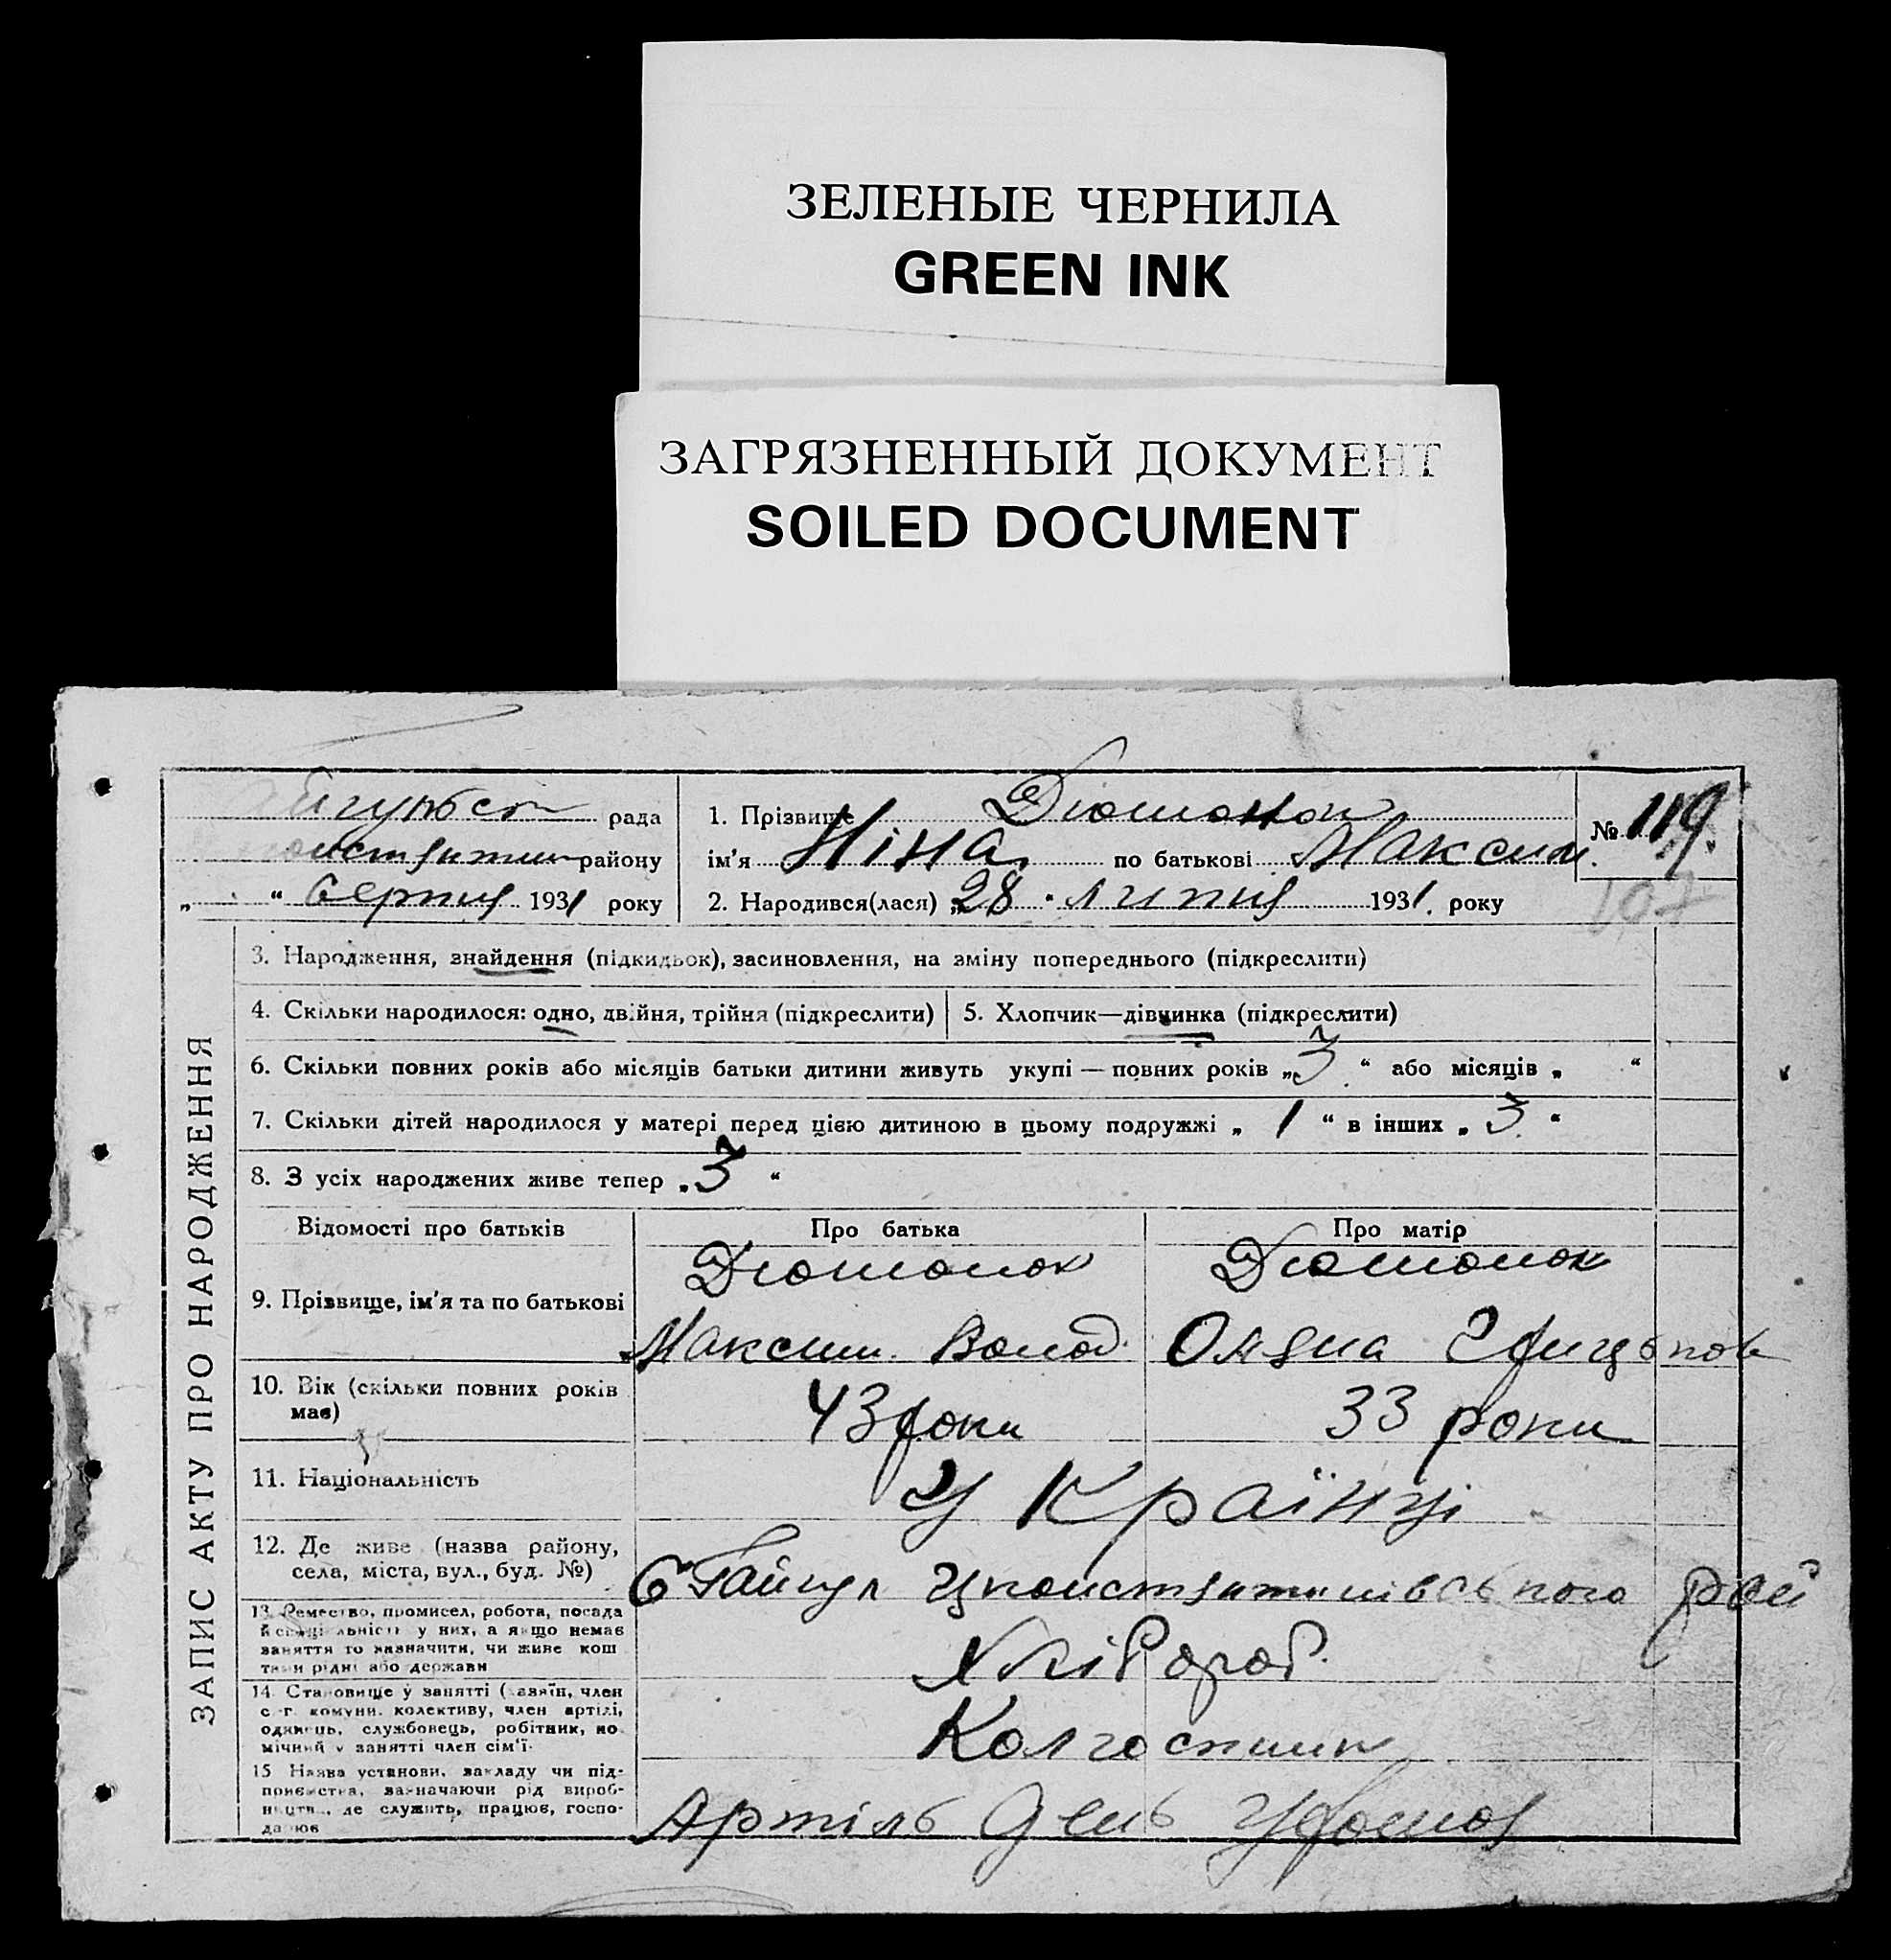 ЗЕЛЕНЫЕ ЧЕРНИЛА
GREEN INK
ЗАГРЯЗНЕННЫЙ ДОКУМЕНТ
SOILED DOCUMENT
ЗАПИС АКТУ ПРО НАРОДЖЕННЯ
рада
району
„ “ Серпня 1931 року
1. Прізвище
ім'я Ніна по батькові Максим.
2. Народився(лася) „28 " липня 1931. року
№ 119.
107
3. Народження, знайдення (підкидьок), засиновлення, на зміну попереднього (підкреслити)
4. Скільки народилося: одно, двійня, трійня (підкреслити)
5. Хлопчик—дівчинка (підкреслити)
6. Скільки повних років або місяців батьки дитини живуть укупі — повних років „3 “ або місяців „ “
7. Скільки дітей народилося у матері перед цією дитиною в цьому подружжі „ 1 “ в інших „ 3 “
8. З усіх народжених живе тепер „3 “
Відомості про батьків
Про батька
Про матір
9. Прізвище, ім'я та по батькові
Максим. Волод.
10. Вік (скільки повних років
має)
43 роки
33 роки
11. Національність
Українці
12. Де живе (назва району,
села, міста, вул., буд. №)
С Гайчул рай
13. Ремество, промисел, робота, посада
й спеціяльність у них, а якщо немає
заняття то зазначити, чи живе кош
тами рідні або держави
Хлібороб.
14. Становище у занятті (хазяїн, член
с.-г. комуни, колективу, член артілі,
одинець, службовець, робітник, по
мічний у занятті член сім'ї.
Колгоспник
15 Назва установи, закладу чи під-
приємства, зазначаючи рід вироб-
ництва, де служить, працює, госпо-
дарює
Артіль День Урожая